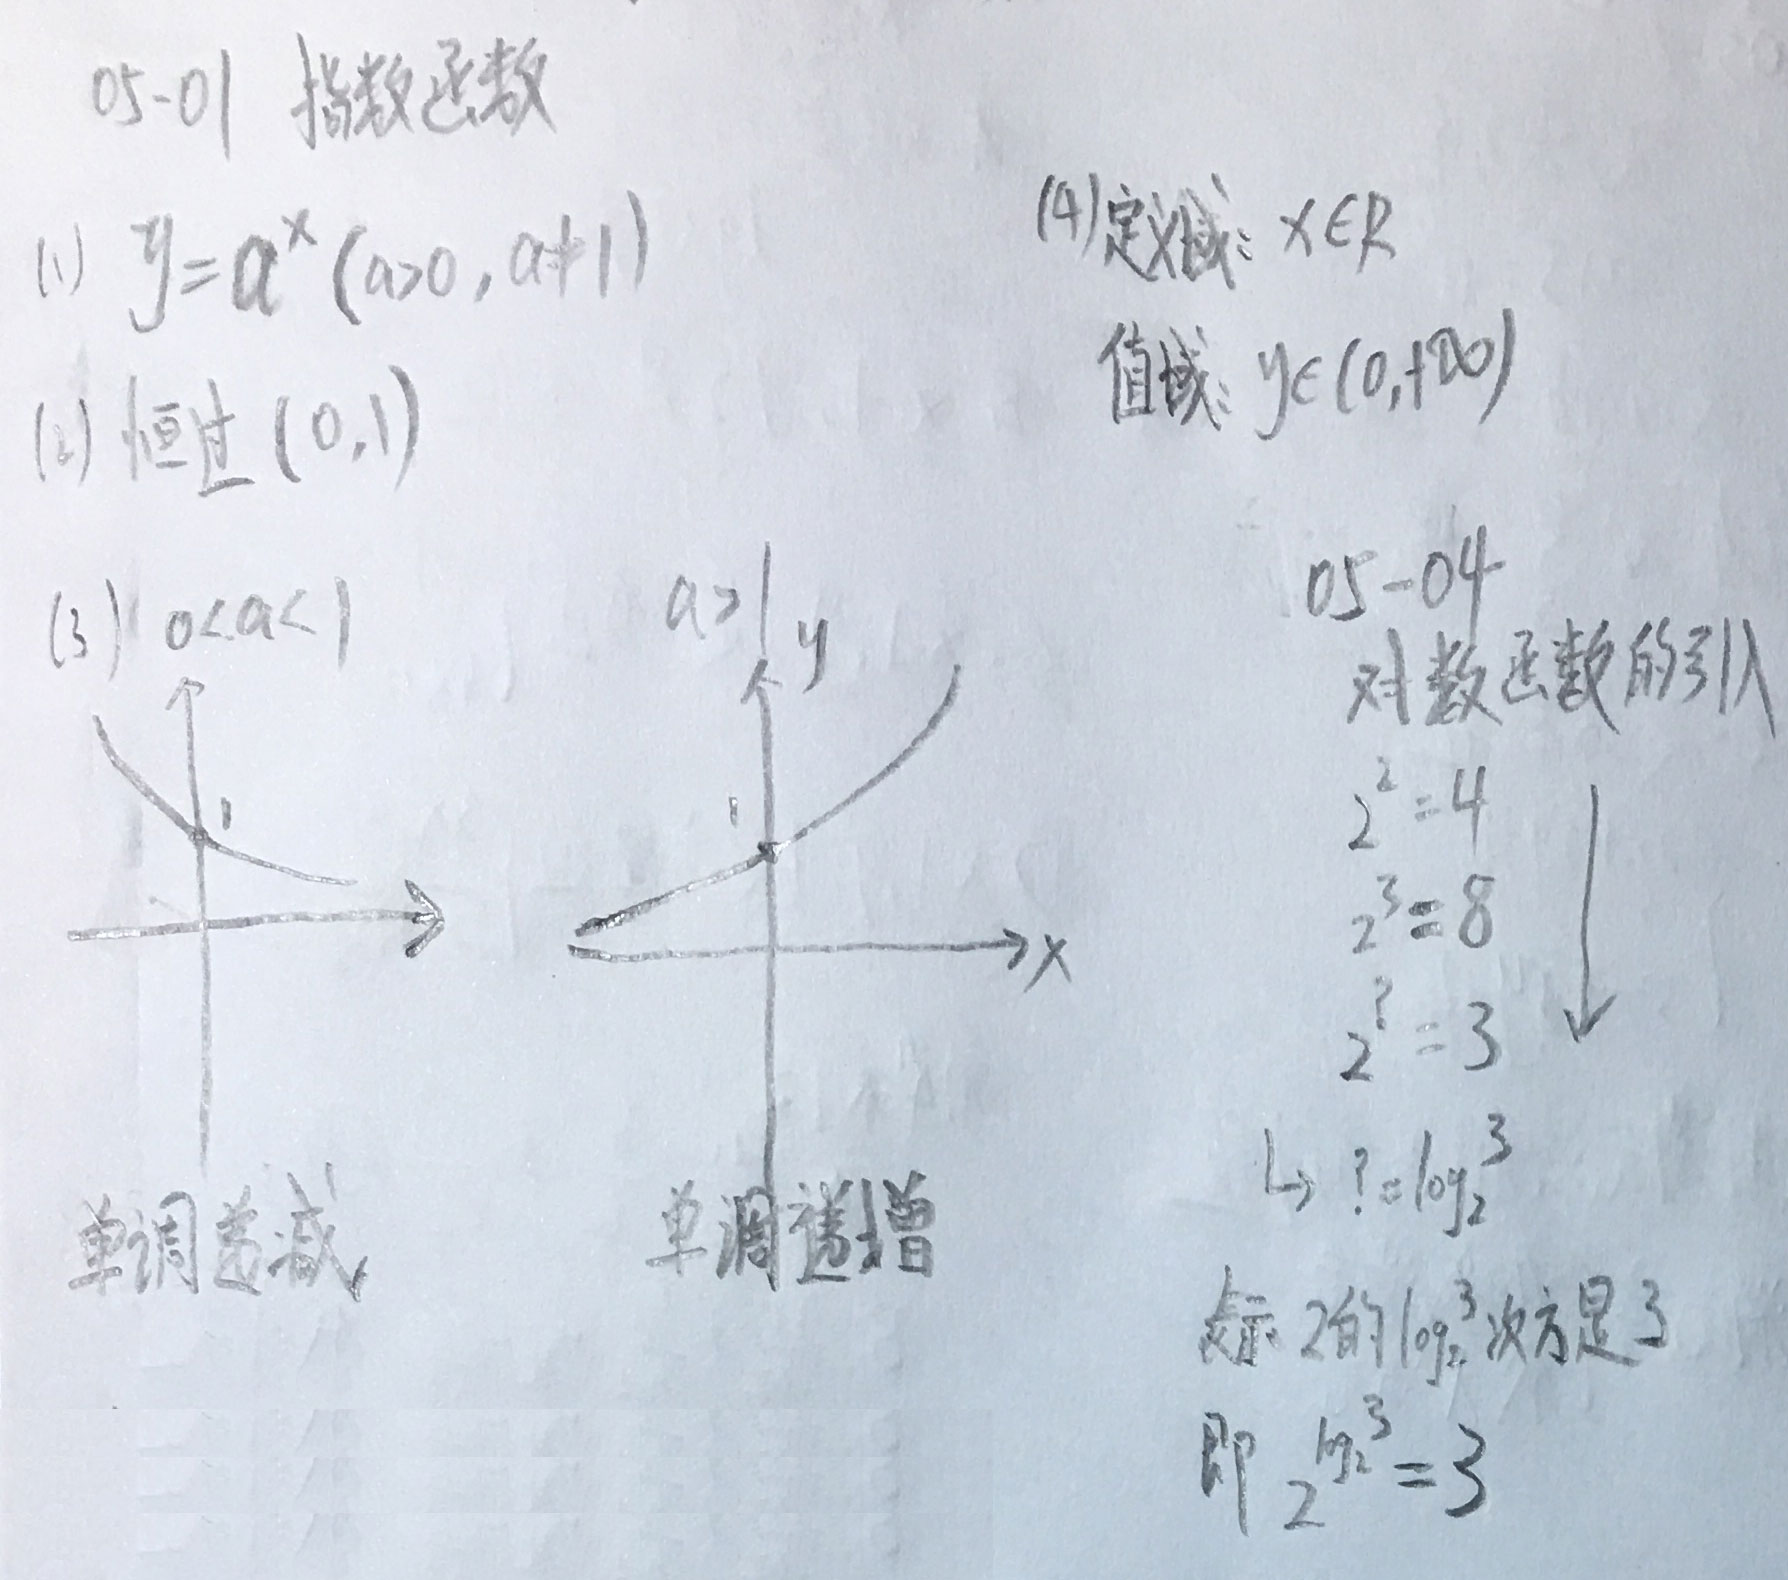 05-01 指数函数
(1) y=aˣ (a>0, a≠1)
(2) 恒过 (0,1)
(3) 0<a<1
1
单调递减
a>1
y
1
x
单调递增
(4) 定义域: x∈R
值域: y∈(0,+∞)
05-04
对数函数的引入
2²=4
2³=8
2^?=3
↳ ?=log₂³
表示 2的log₂³次方是3
即 2^log₂³=3